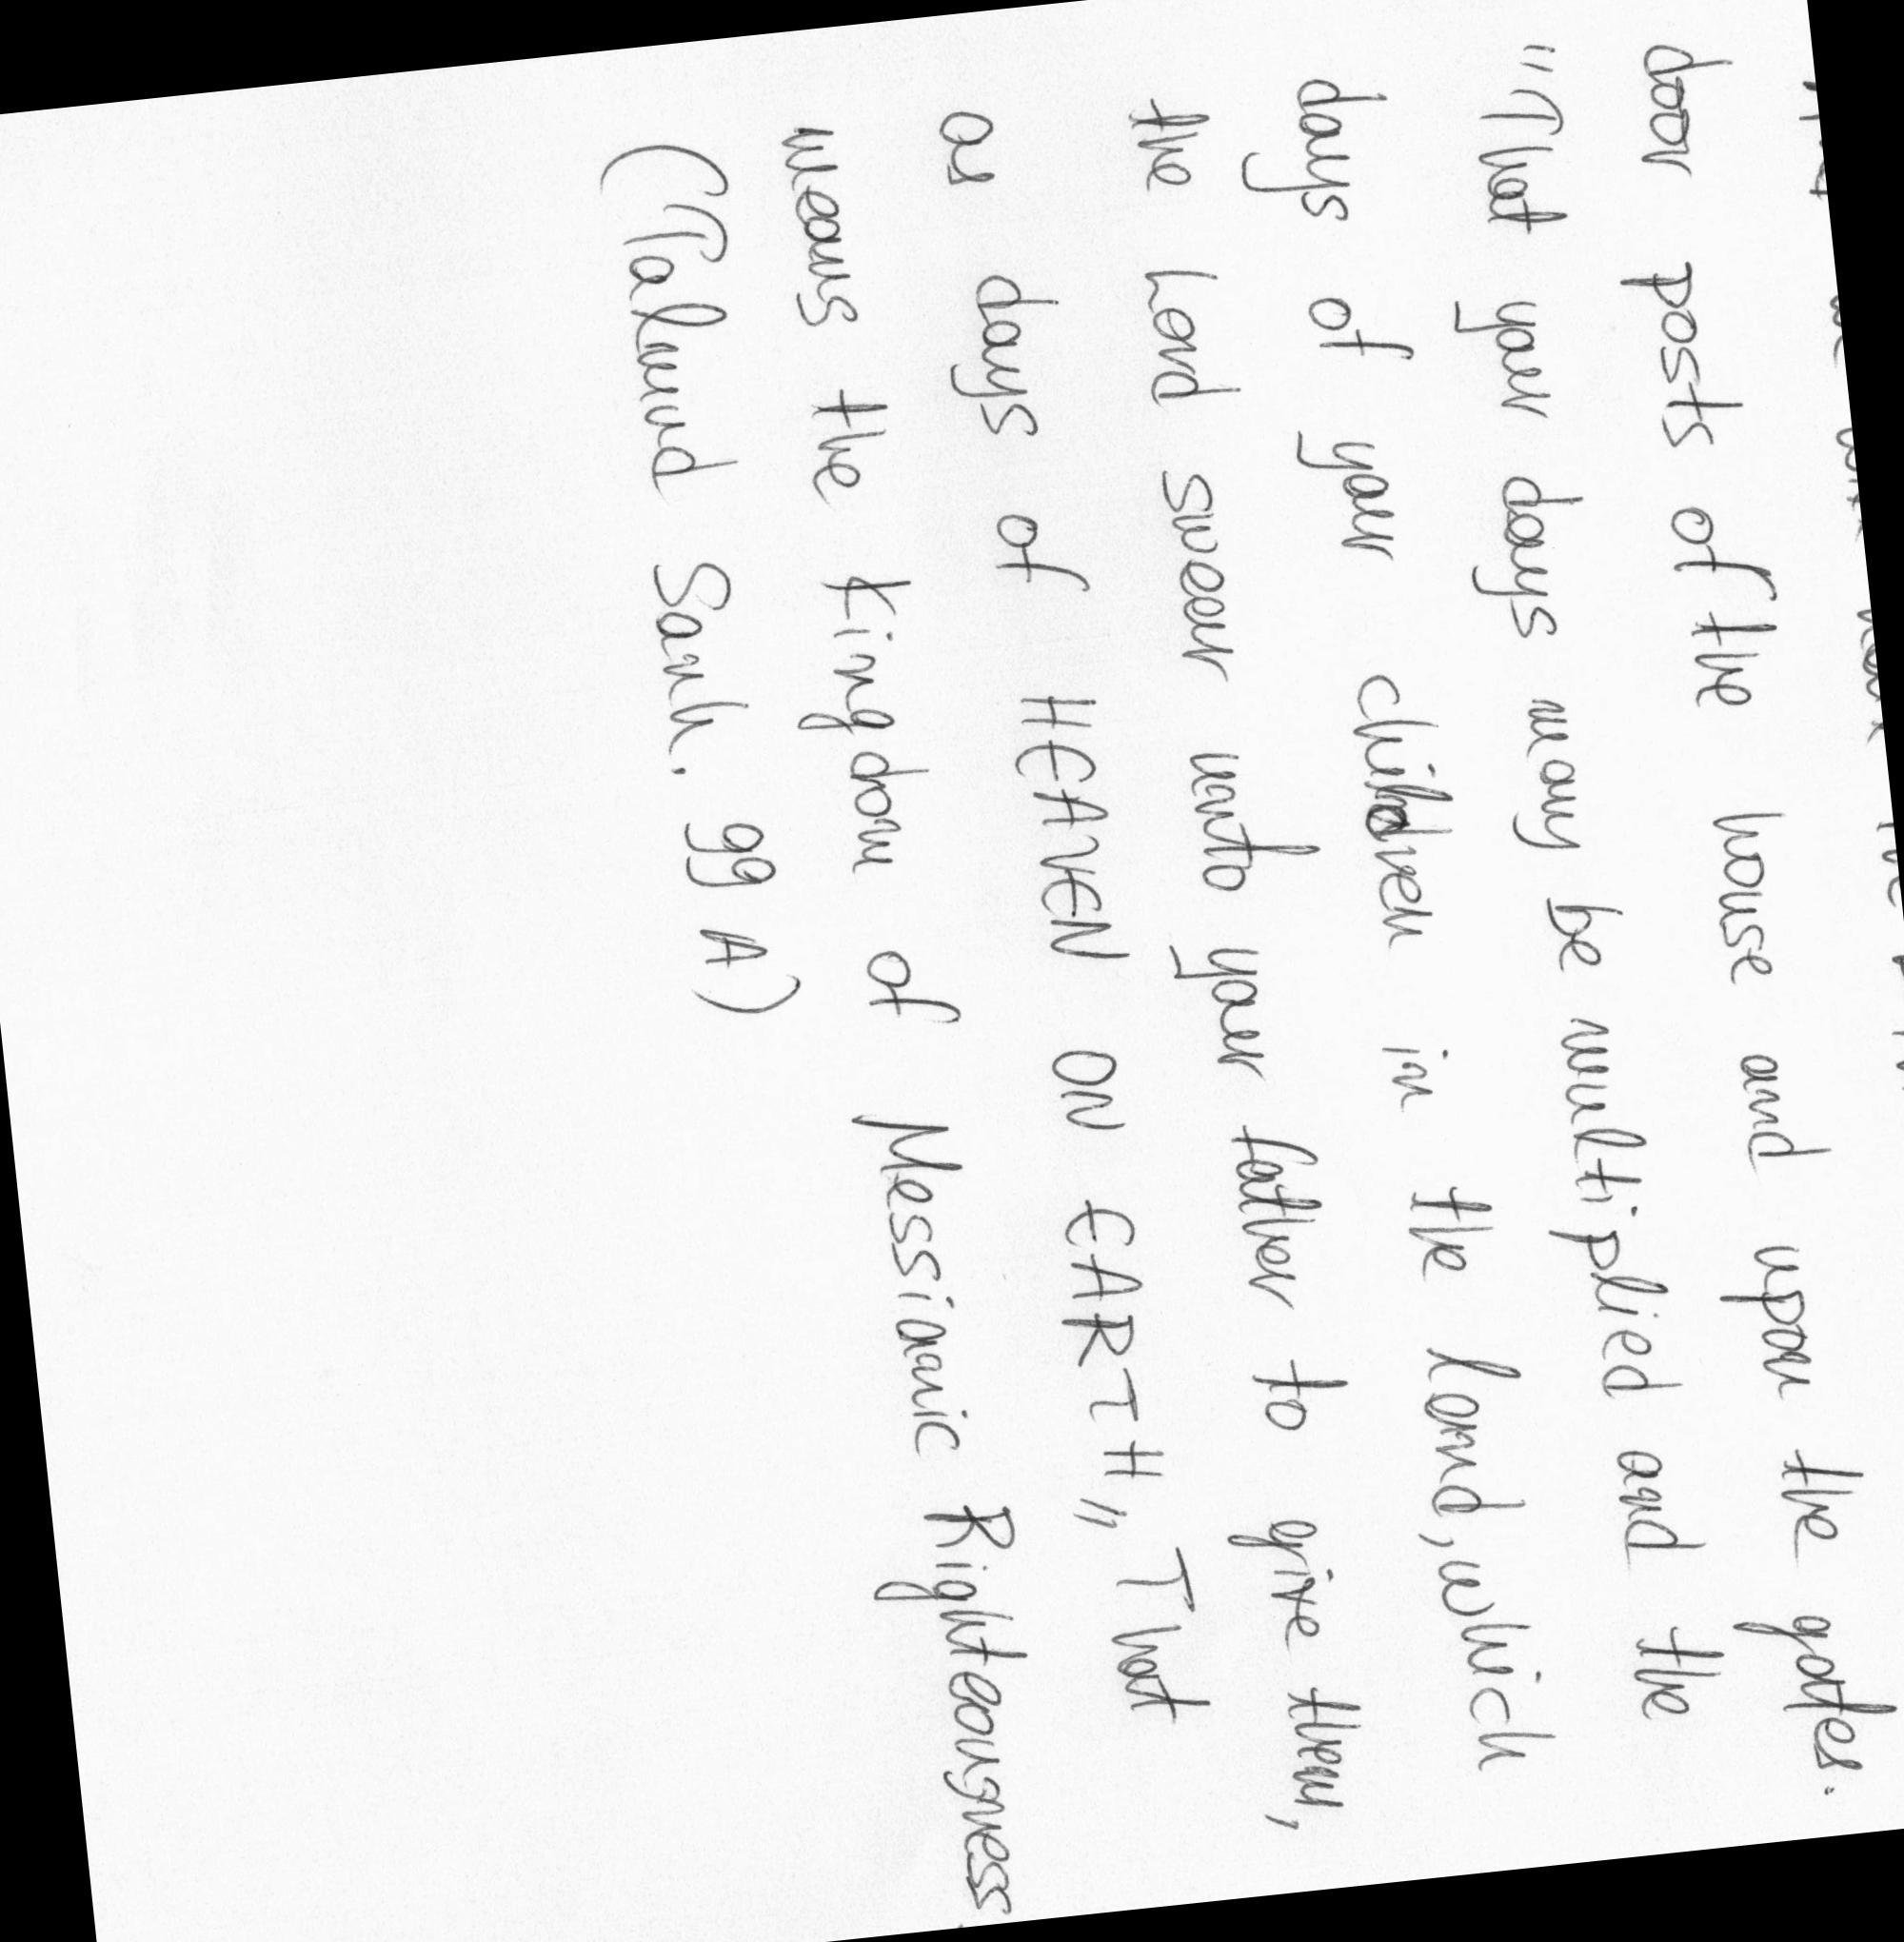 door posts of the house and upon the gates.
"That your days may be multiplied and the
days of your children in the land, which
the Lord swear unto your father to give them,
as days of HEAVEN ON EARTH" That
means the Kingdom of Messianic Righteousness.
(Talmud Sanh. 99 A)